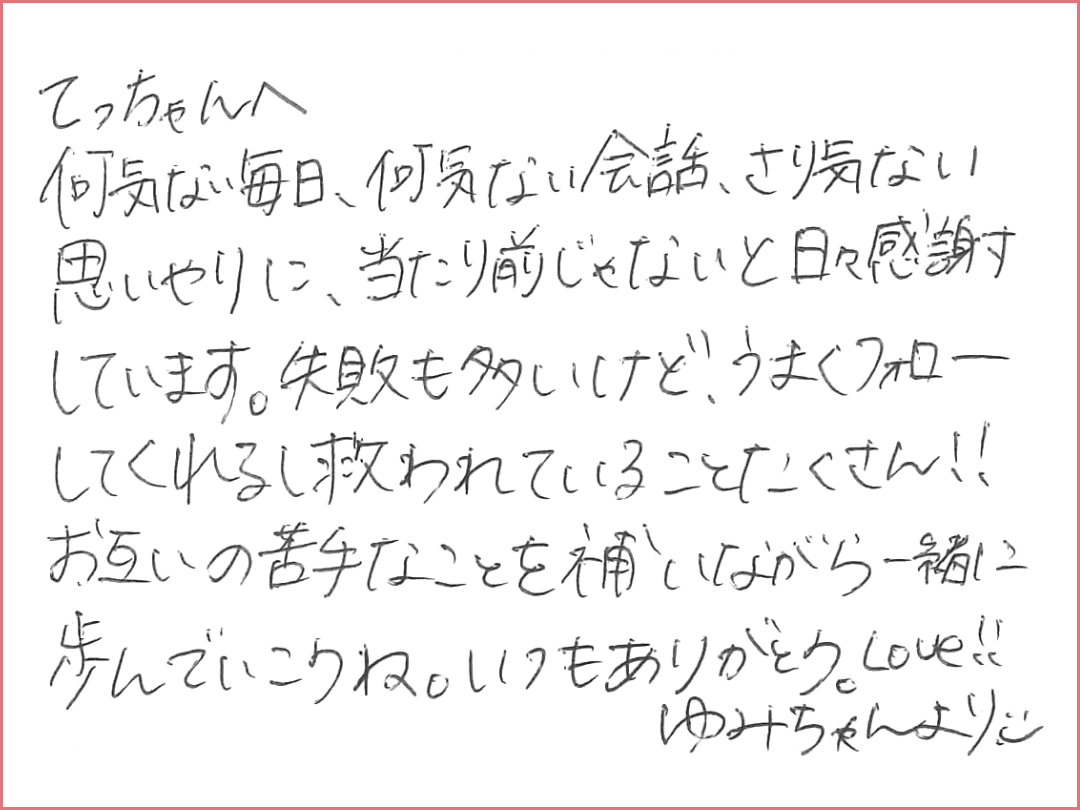 てっちゃんへ
何気ない毎日、何気ない会話、さり気ない
思いやりに、当たり前じゃないと日々感謝す
しています。失敗も多いけど、うまくフォロー
してくれるし救われていることたくさん!!
お互いの苦手なことを補いながら一緒に
歩んでいこうね。いつもありがとう。Love!!
ゆみちゃんより